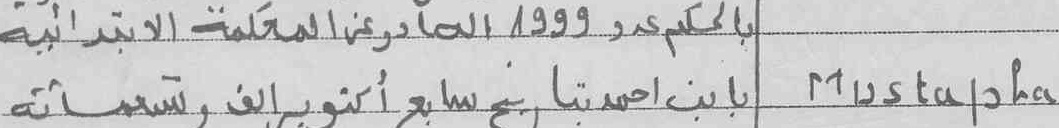 بالحكم عدد 1999 الصادر عن المحكمة الابتدائية
بابن احمد بتاريخ سابع أكتوبر الف وتسعمائه Mustapha